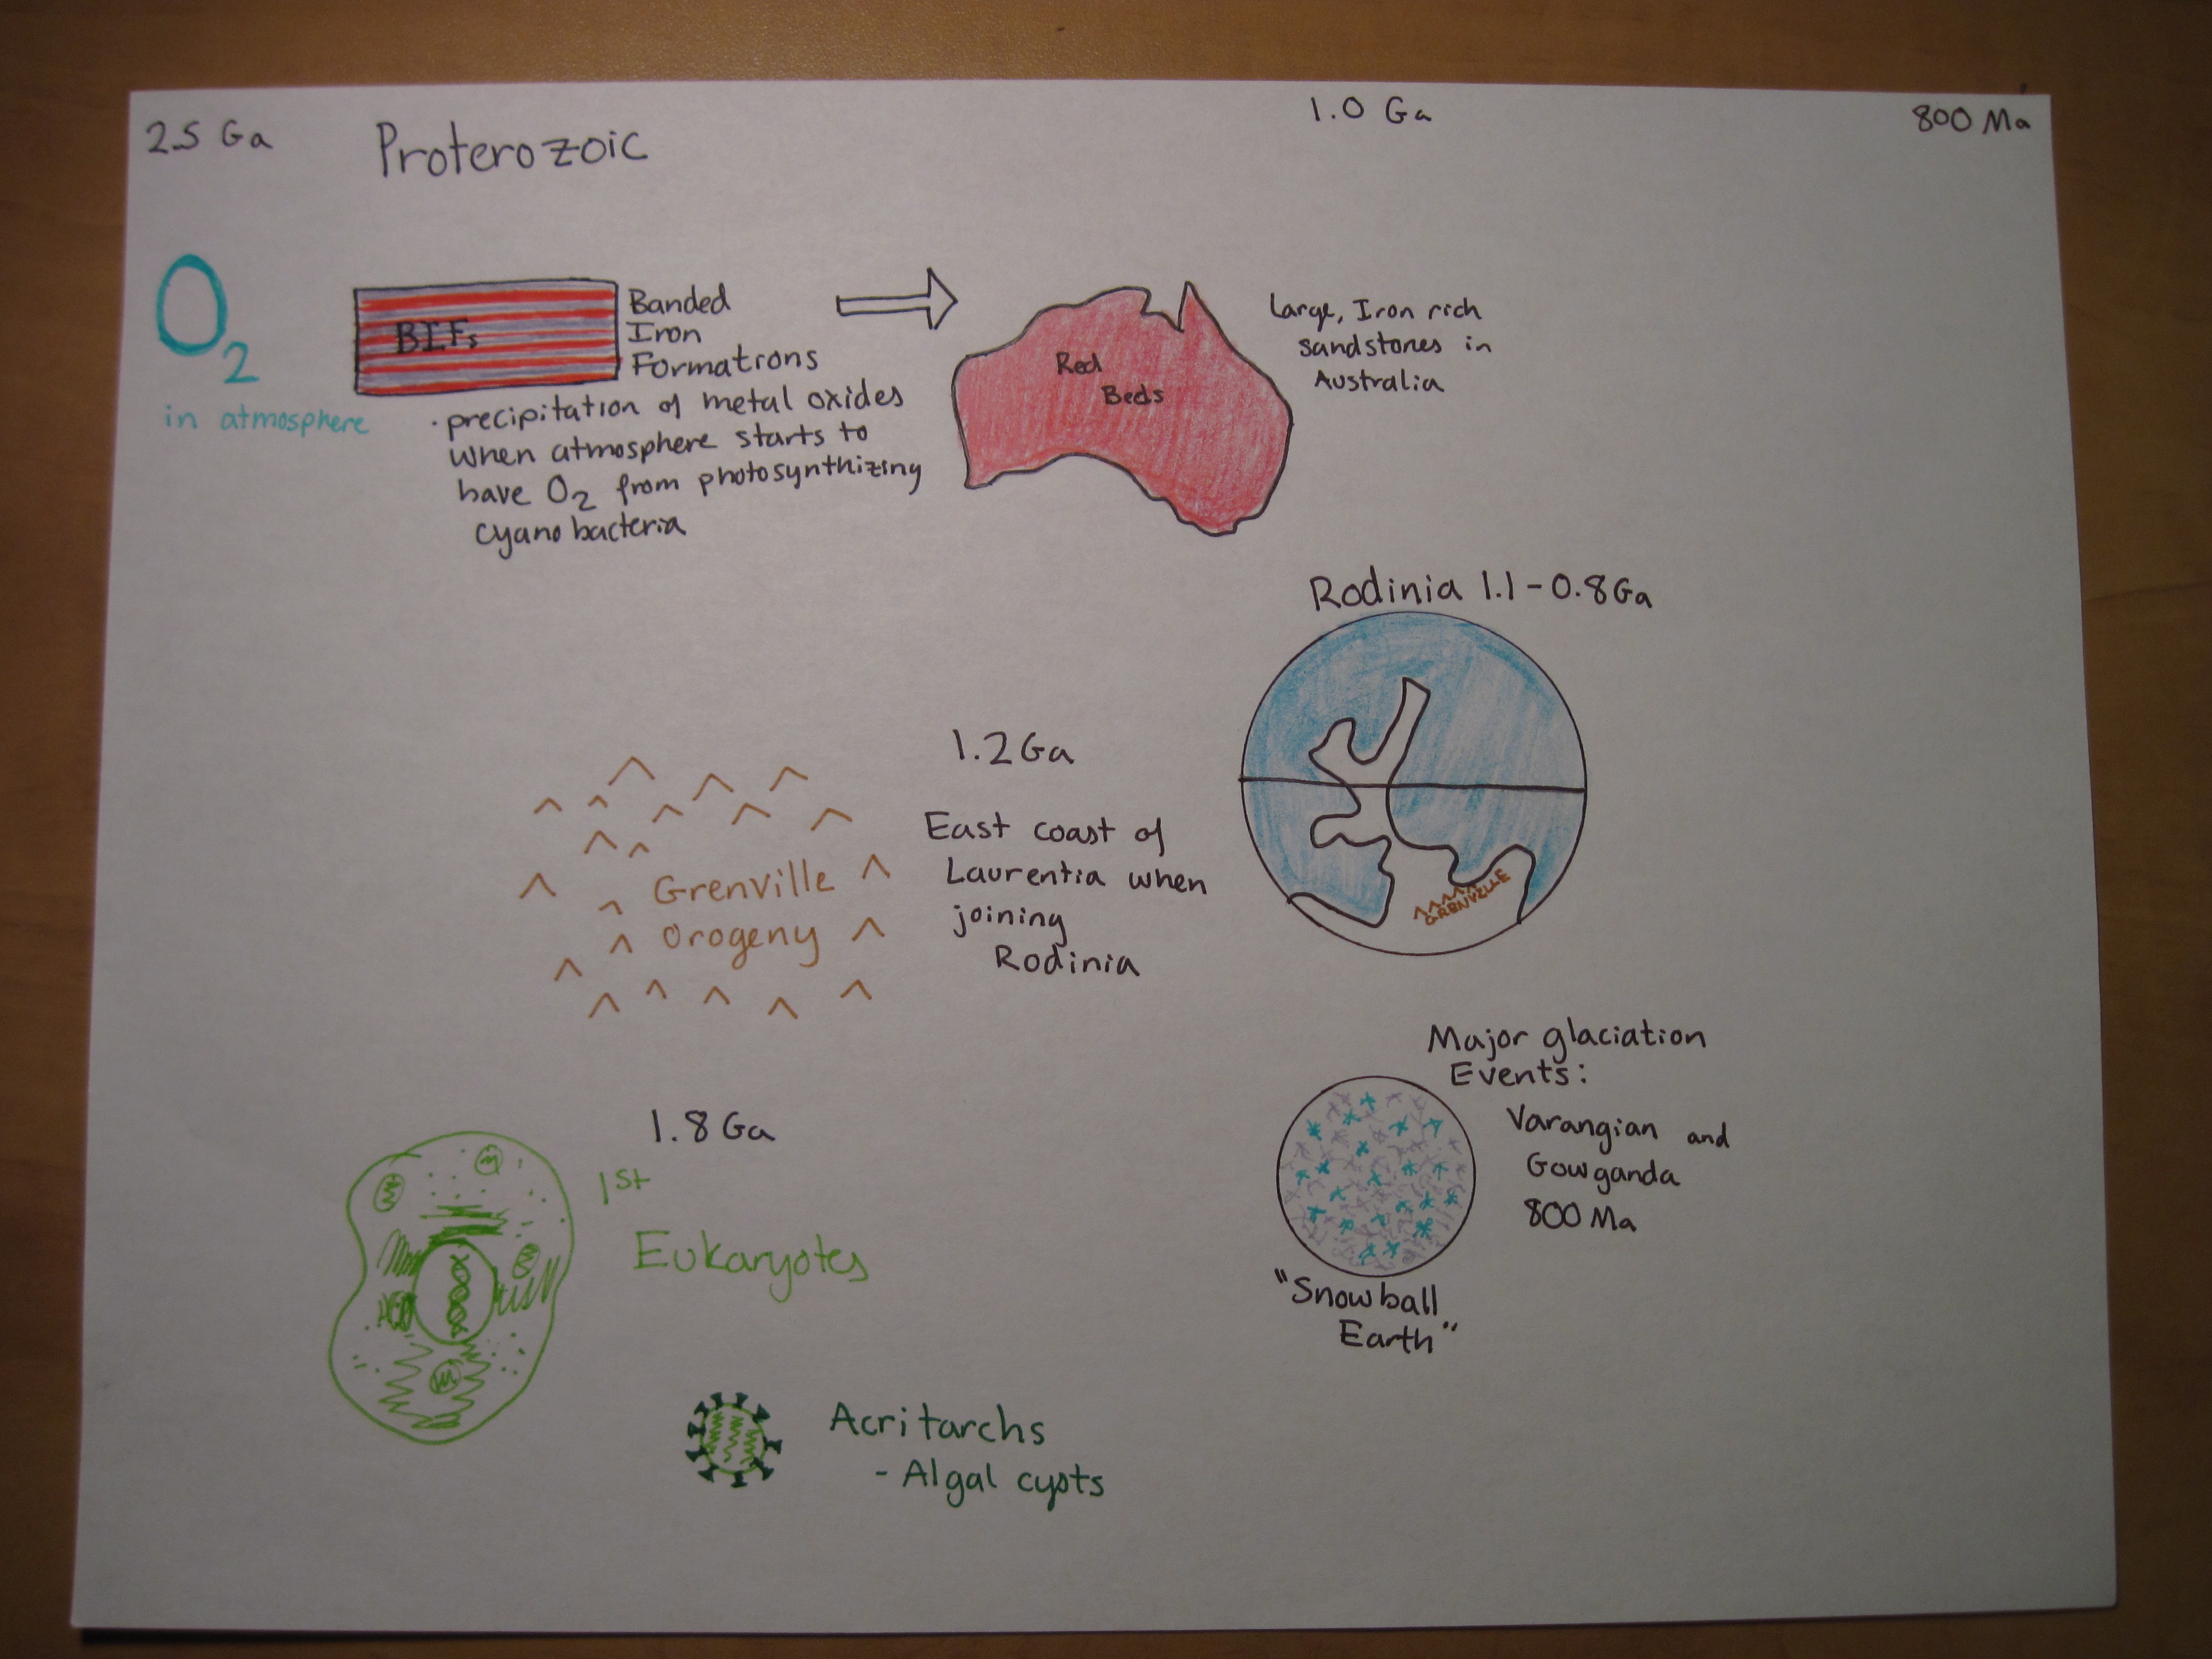 2.5 Ga
Proterozoic
1.0 Ga
800 Ma
O2
in atmosphere
BIFs
Banded
Iron
Formations
· precipitation of metal oxides
when atmosphere starts to
have O2 from photosynthizing
cyanobacteria
Red
Beds
Large, Iron rich
sandstones in
Australia
Rodinia 1.1-0.8Ga
GRENVILLE
1.2 Ga
East coast of
Laurentia when
joining
Rodinia
Grenville
Orogeny
Major glaciation
Events:
Varangian and
Gowganda
800 Ma
"Snowball
Earth"
1.8 Ga
1st
Eukaryotes
Acritarchs
- Algal cysts